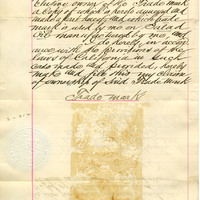 clusive owner of the Trade Mark
a Copy of which is hereto annexed and
made a part hereof, and which Trade
mark is used by me on Salad
Oil manufactured by me, and
I do hereby in accord
ance with the provisions of the
laws of California in such
case made and provided, hereby
make and file this my claim
of ownership of said Trade Mark
Trade mark